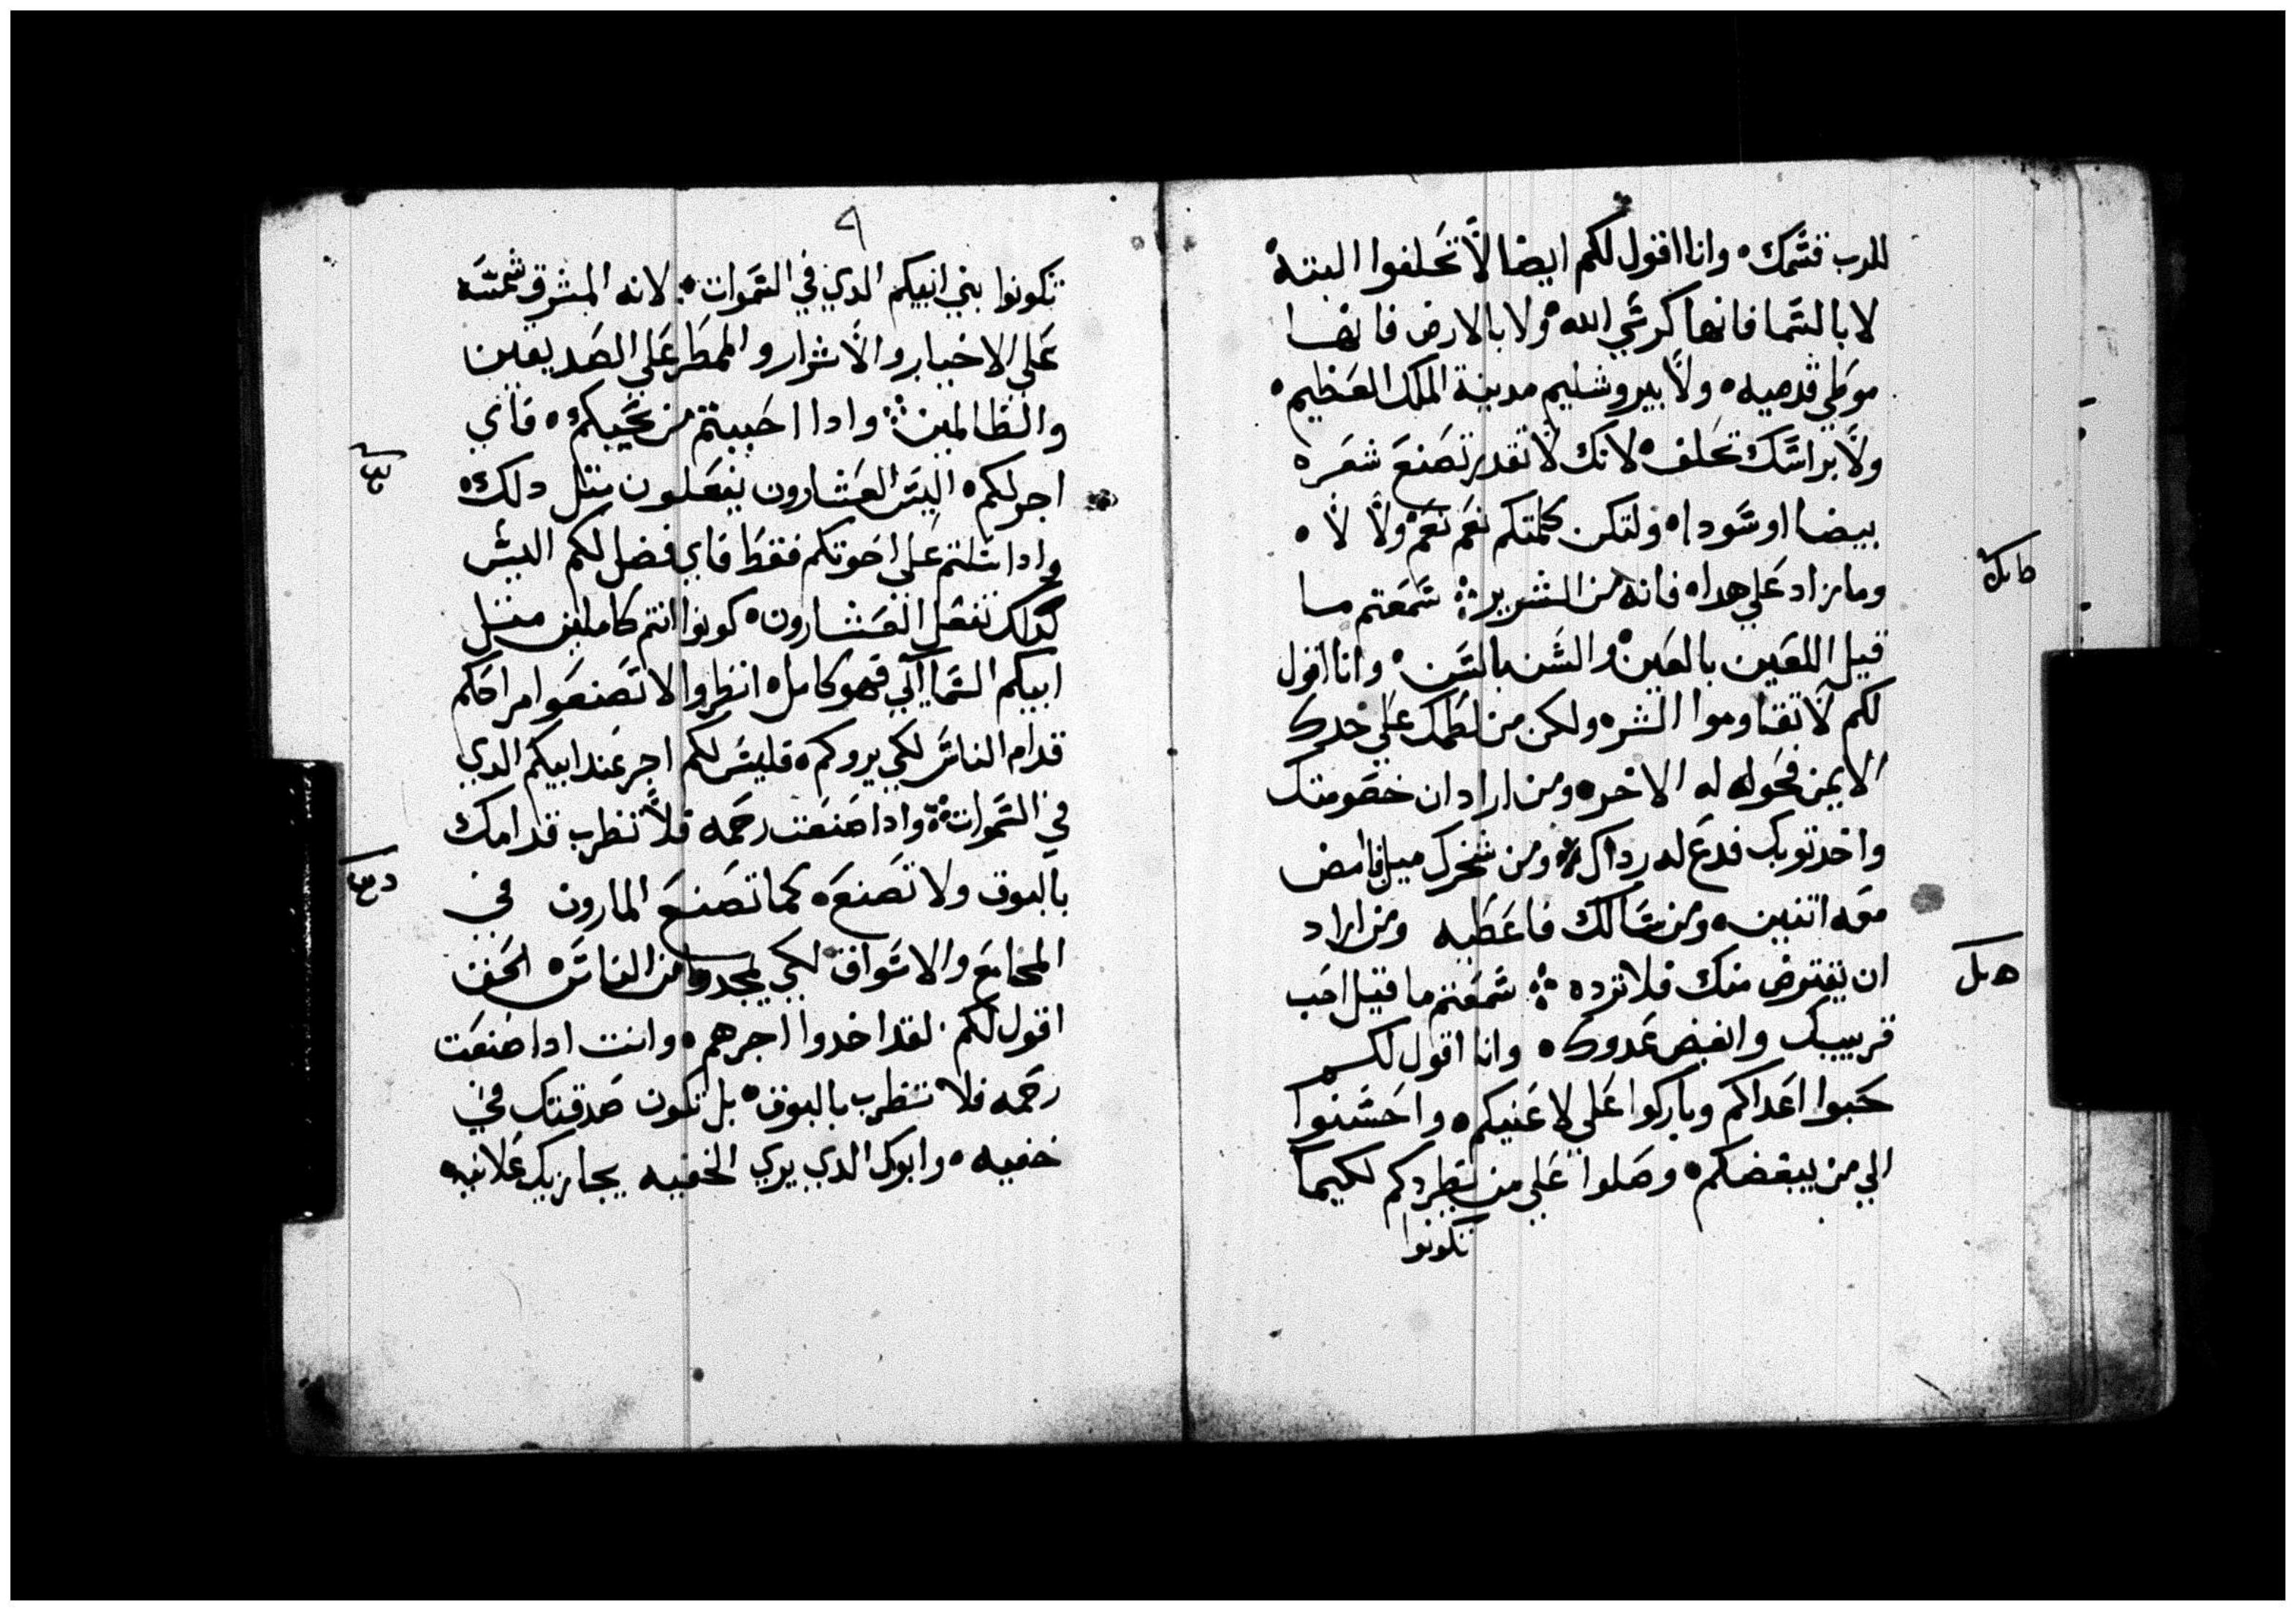 للرب قسمك ه وانا اقول لكم ايضا لا تحلفوا البتة
لا بالسما فانها كرسي الله ه ولا بالارض فانها
موطي قدميه ه ولا بيروشليم مدينة الملك العظيم ه
ولا براسك تحلف ه لانك لا تقدر تصنع شعره
بيضا او سودا ه ولتكن كلمتكم نعم نعم ولا لا ه
وما زاد علي هدا ه فانه من الشرير ܀ سمعتم ما
قيل العين بالعين والسن بالسن ه وانا اقول
لكم لا تقاوموا الشر ه ولكن من لطمك علي خدك
الايمن فحول له الاخر ه ومن اراد ان خصومتك
واخد توبك فدع له رداك ه ومن سخرك ميل فامض
معه اتنين ه ومن سالك فاعطيه ومن اراد
ان يقترض منك فلا ترده ܀ سمعتم ما قيل احب
قريبك وابغض عدوك ه وانا اقول لكم
حبوا اعداكم وباركوا علي لاعنيكم ه واحسنوا
الي من يبغضكم ه وصلوا علي من يطردكم لكيما
تكونوا
٩
تكونوا بني ابيكم الدي في السموات ه لانه المشرق شمسه
علي الاخيار والاشرار والممطر علي الصديقين
والظالمين ܀ وادا احببتم من يحبكم ه فاي
اجر لكم ه اليس العشارون يفعلون متل دلك ه
وادا سلتم علي اخوتكم فقط فاي فضل لكم اليس
كدلك تفعل العشارون ه كونوا انتم كاملين متل
ابيكم السماآئي فهو كامل ه انظروا لا تصنعوا مراحمكم
قدام الناس لكي يروكم ه فليس لكم اجر عند ابيكم الدي
في السموات ܀ وادا صنعت رحمه فلا تظرب قدامك
بالبوق ولا تصنع ه كما تصنع المارون في
المجامع والاسواق لكي يمجدوا من الناس ه الحق
اقول لكم ٠ لقد اخدوا اجرهم ه وانت ادا صنعت
رحمه فلا تظرب بالبوق ه بل تكون صدقتك في
خفيه ه وابوك الدي يري الخفيه يجازيك علانيه ه